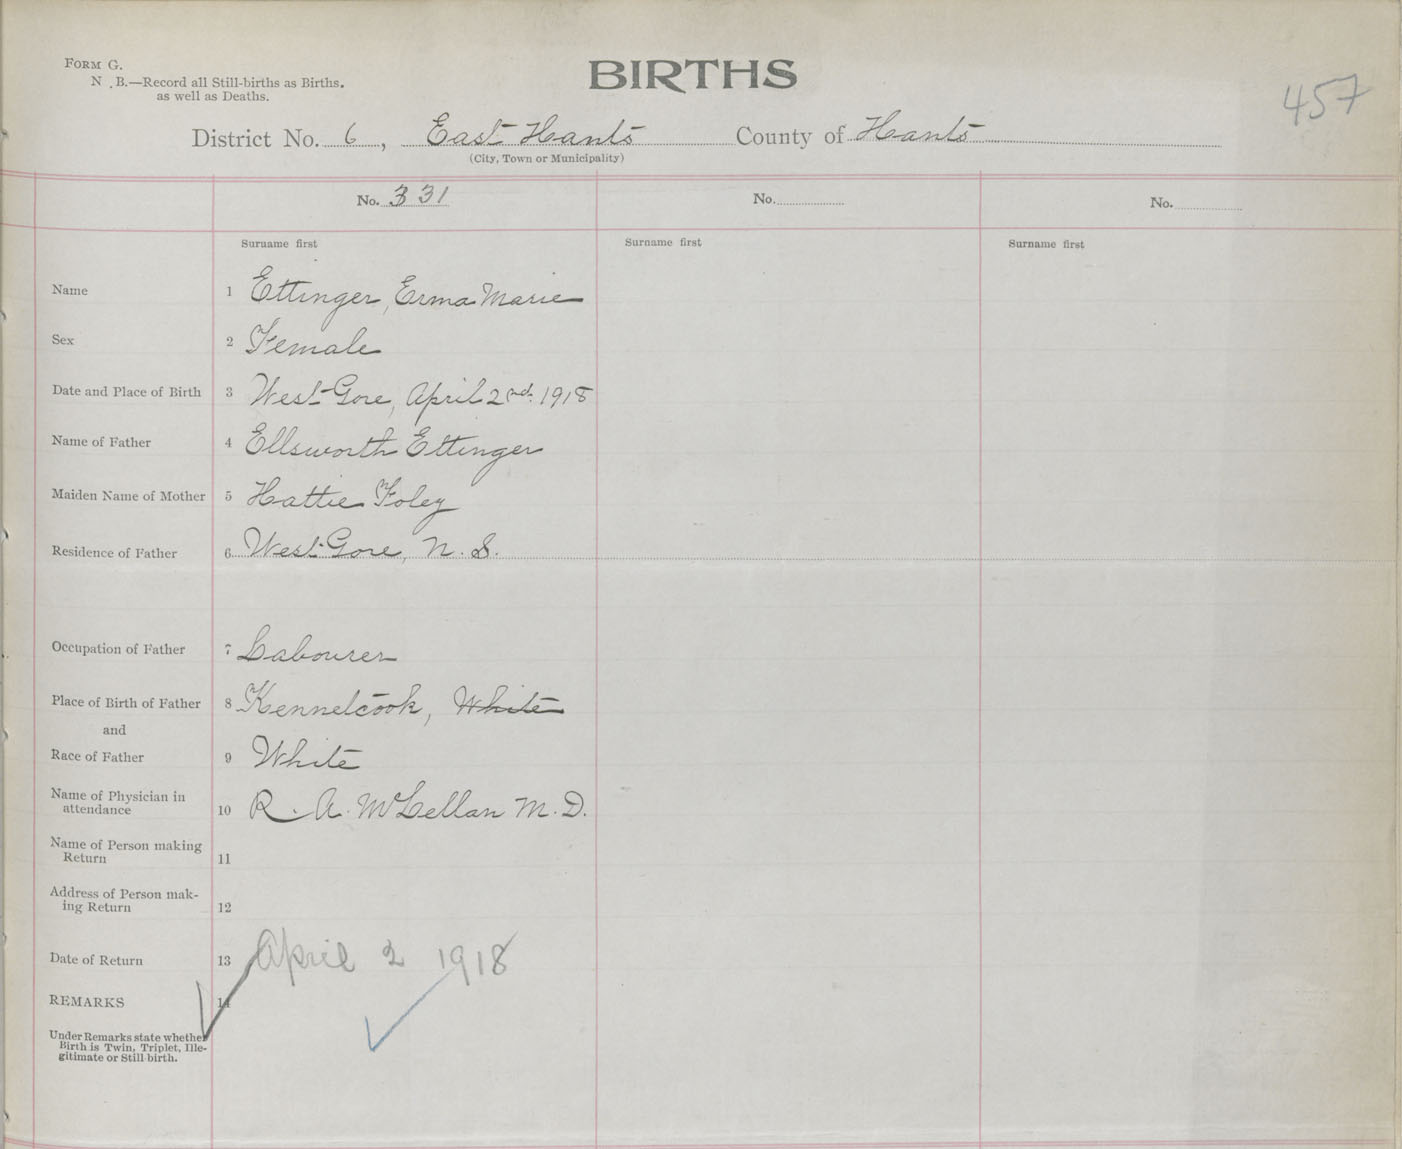 FORM G.
N.B.—Record all Still-births as Births.
as well as Deaths.
BIRTHS
457
District No. 6, East Hants County of Hants
(City, Town or Municipality)
No. 331 No. No.
Surname first Surname first Surname first
Name 1 Ettinger, Erma Marie
Sex 2 Female
Date and Place of Birth 3 West Gore, April 2nd. 1918
Name of Father 4 Ellsworth Ettinger
Maiden Name of Mother 5 Hattie Foley
Residence of Father 6 West Gore, N. S.
Occupation of Father 7 Labourer
Place of Birth of Father 8 Kennetcook, White
and
Race of Father 9 White
Name of Physician in
attendance 10 R. A. McLellan M. D.
Name of Person making
Return 11
Address of Person mak-
ing Return 12
Date of Return 13 April 2 1918
REMARKS 14
Under Remarks state whether
Birth is Twin, Triplet, Ille-
gitimate or Still-birth.